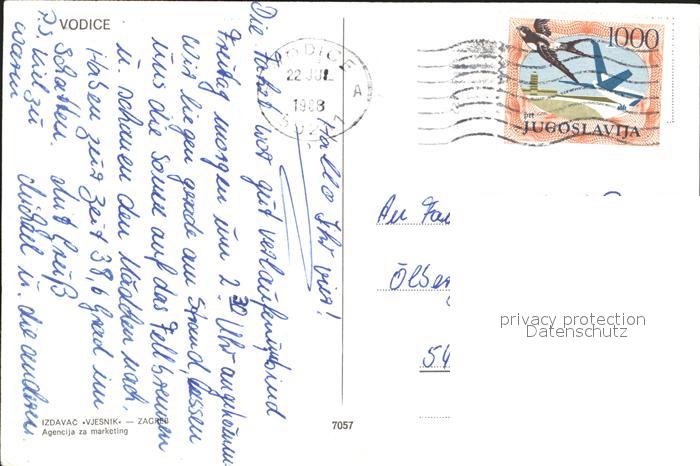 VODICE
VODICE
22 JUL
1988
A
1000
ptt
JUGOSLAVIJA
Hallo Ihr vier!
Die Fahrt war gut verlaufen, sind
Freitag morgen um 2.30 Uhr angekommen
Wir liegen gerade am Strand, lassen
uns die Sonne auf das Fell brennen
u. schauen den Mädchen nach.
Haben zur Zeit 38,6 Grad im
Schatten. Mit Gruß
Michael u. die anderen.
P.S. Viel zu
warm
An Fam
Ölber
54
privacy protection
Datenschutz
IZDAVAČ »VJESNIK« — ZAGREB
Agencija za marketing
7057